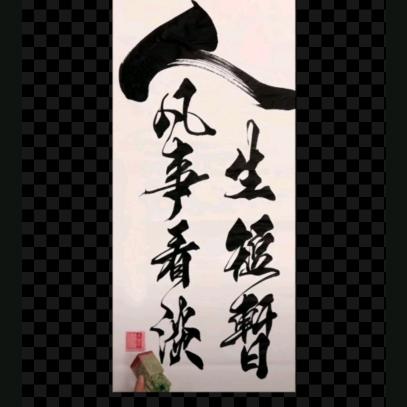 人生短暫
凡事看淡